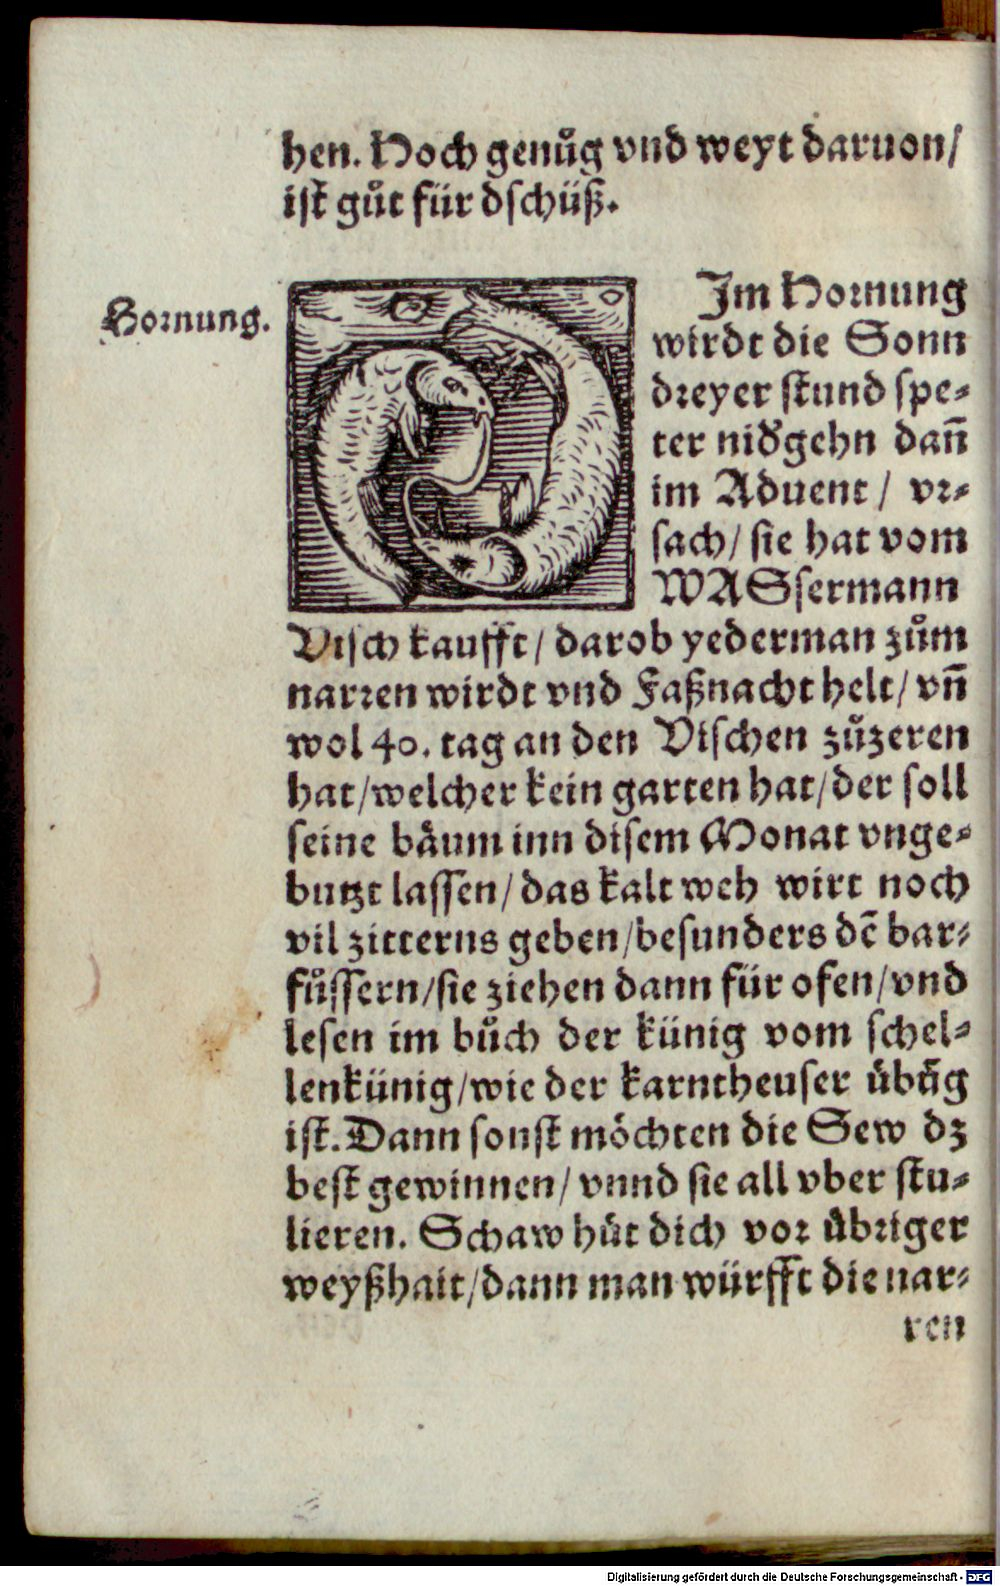 hen. Hoch genůg vnd weyt daruon/
ist gůt für dschüß.
Hornung.
Im Hornung
wirdt die Sonn
dreyer stund spe-
ter nid'gehn dañ
im Aduent / vr-
sach/ sie hat vom
WASsermann
Visch kaufft/ darob yederman zům
narren wirdt vnd Faßnacht helt/ vñ
wol 40. tag an den Vischen zůzeren
hat/welcher kein garten hat/der soll
seine bäum inn disem Monat vnge-
butzt lassen/ das kalt weh wirt noch
vil zitterns geben/besunders dē bar-
fůssern/sie ziehen dann für ofen/vnd
lesen im bůch der künig vom schel-
lenkünig/wie der karntheuser übũg
ist. Dann sonst möchten die Sew dz
best gewinnen/ vnnd sie all vber stu-
lieren. Schaw hüt dich vor übriger
weyßhait/dann man würfft die nar-
ren
Digitalisierung gefördert durch die Deutsche Forschungsgemeinschaft - DFG